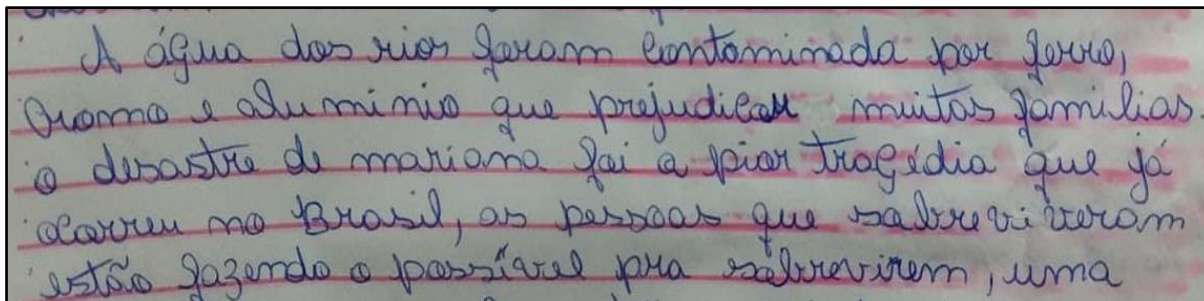 A água dos rios foram contaminada por ferro,
cromo e aluminio que prejudicou muitas familias
o desastre de mariana foi a pior tragédia que já
ocorreu no Brasil, as pessoas que sobreviveram
estão fazendo o possível pra sobrevirem, uma